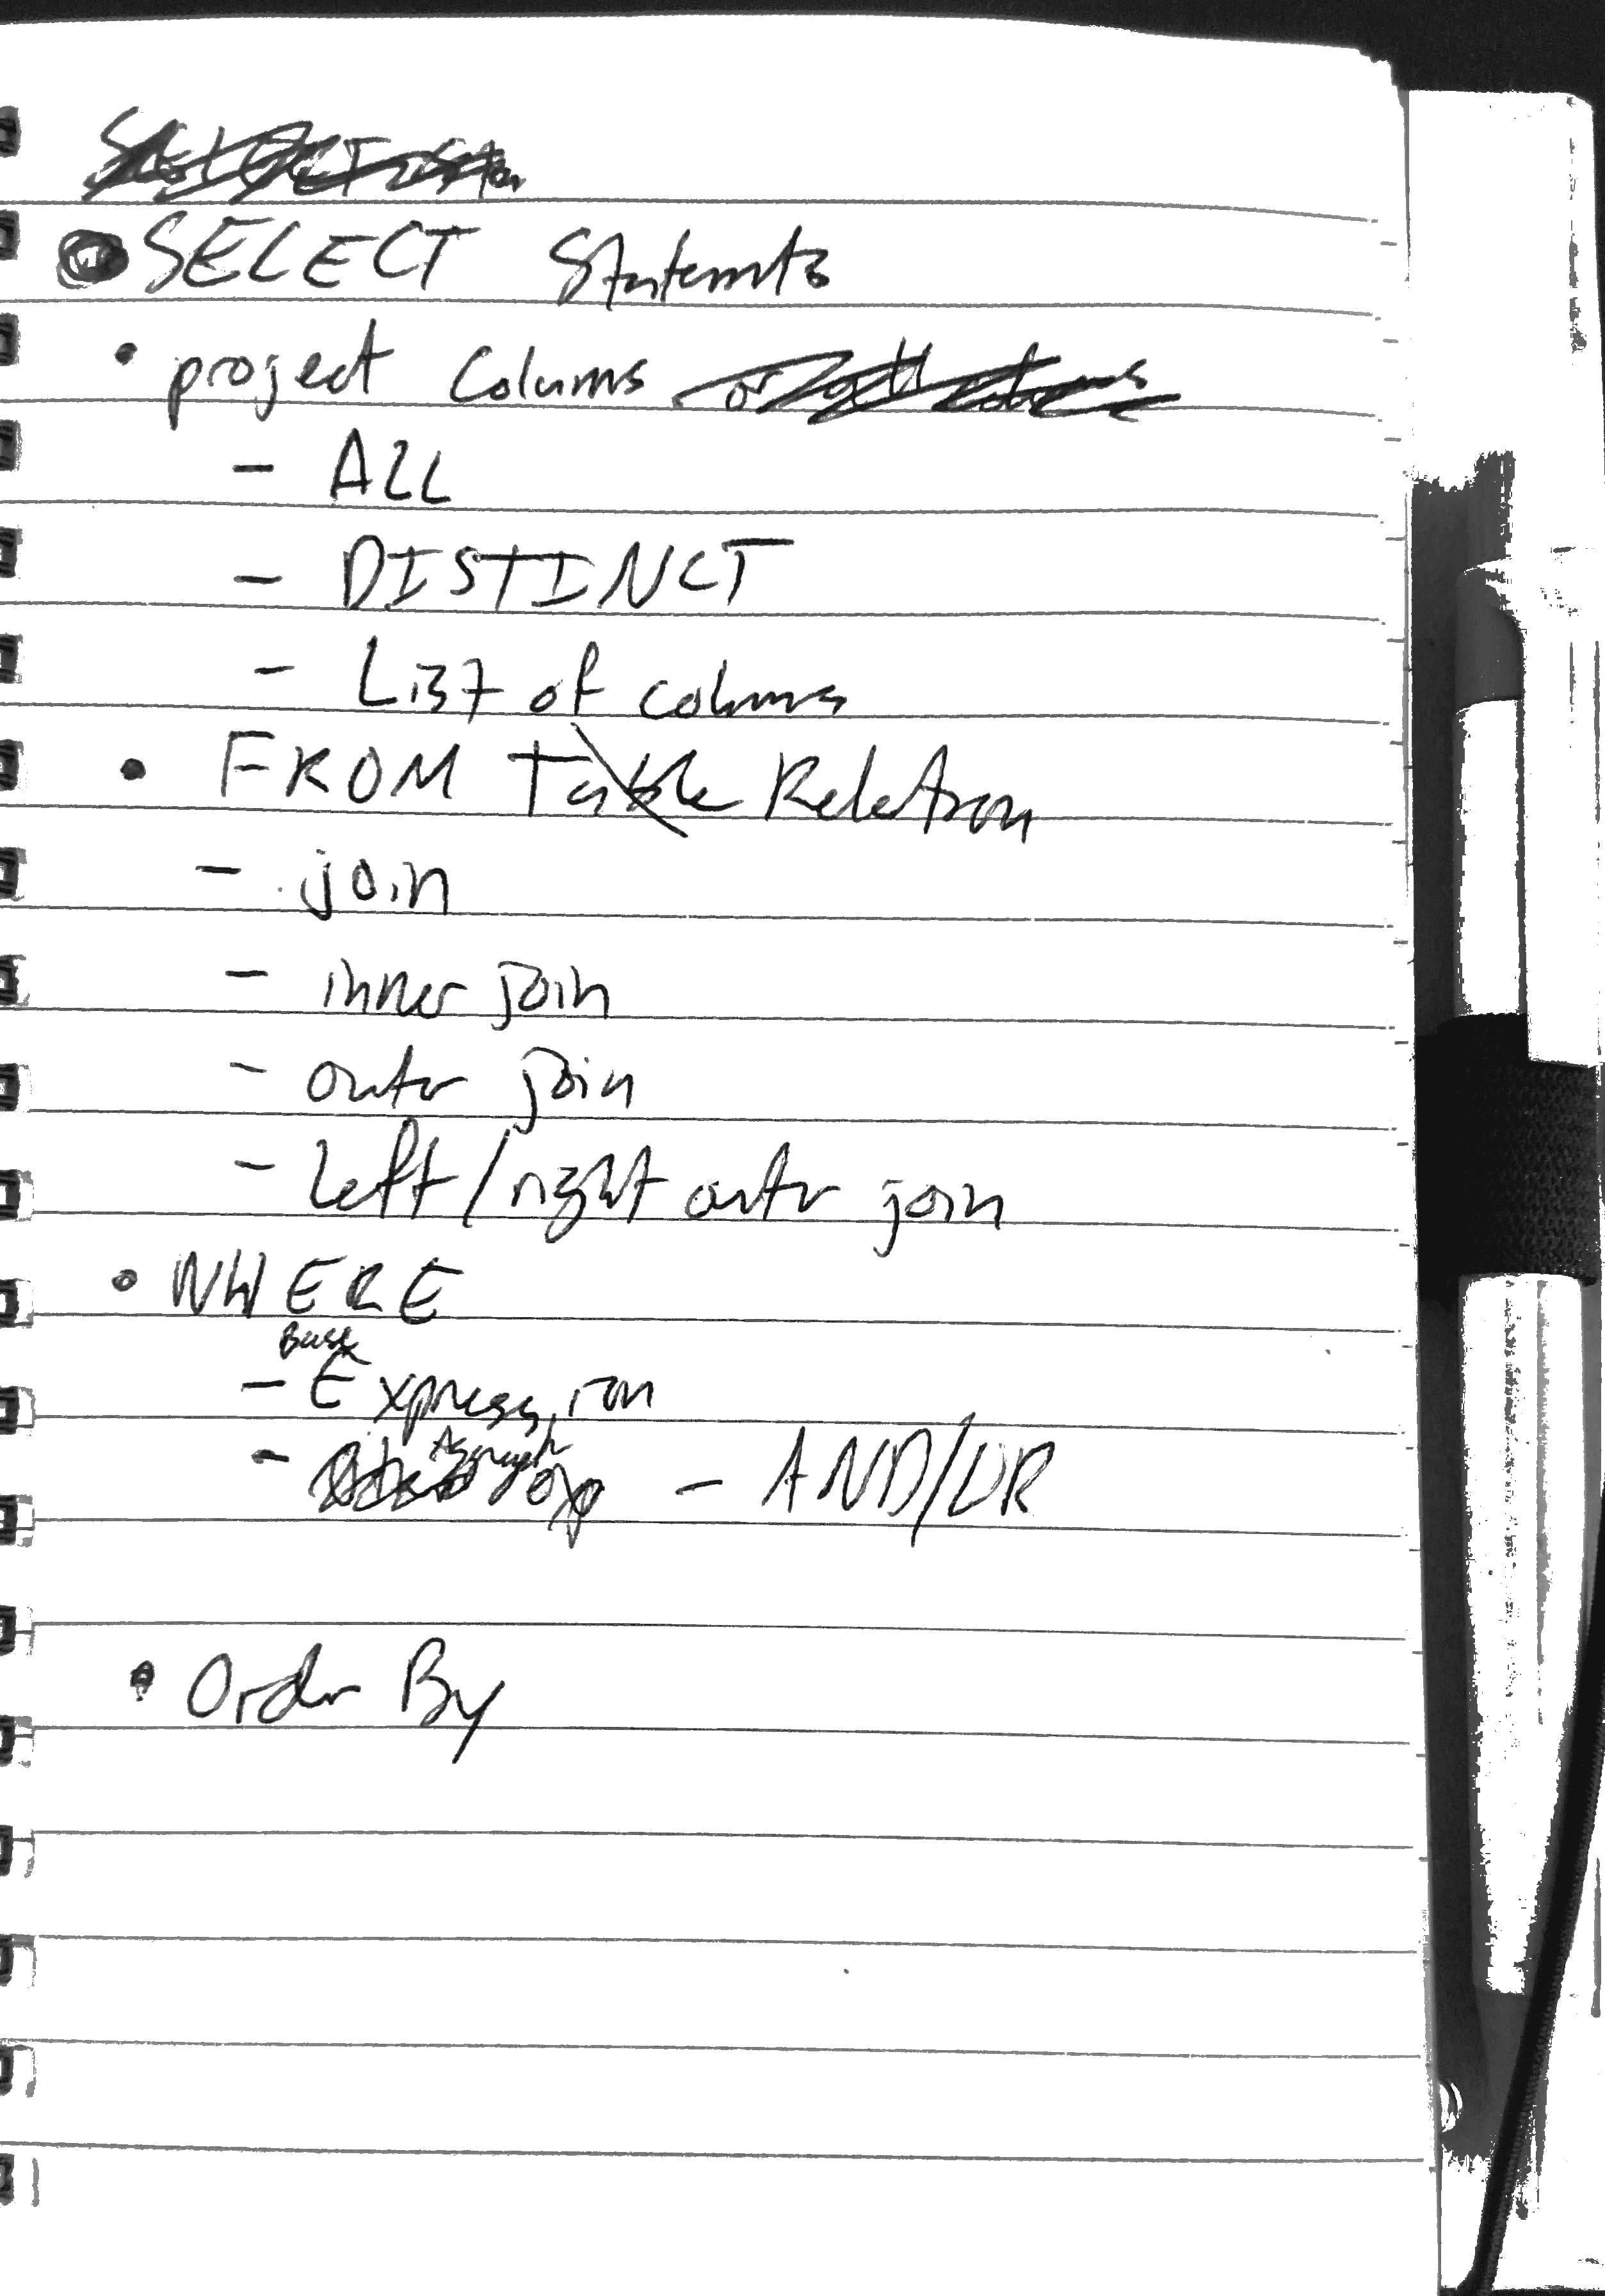 SELECT Statements
• project Colums
- ALL
- DISTINCT
- List of colums
• FROM Table Relation
- join
- inner join
- outer join
- left/right outer join
• WHERE
Base
- Expression
- op - AND/OR
• Order By